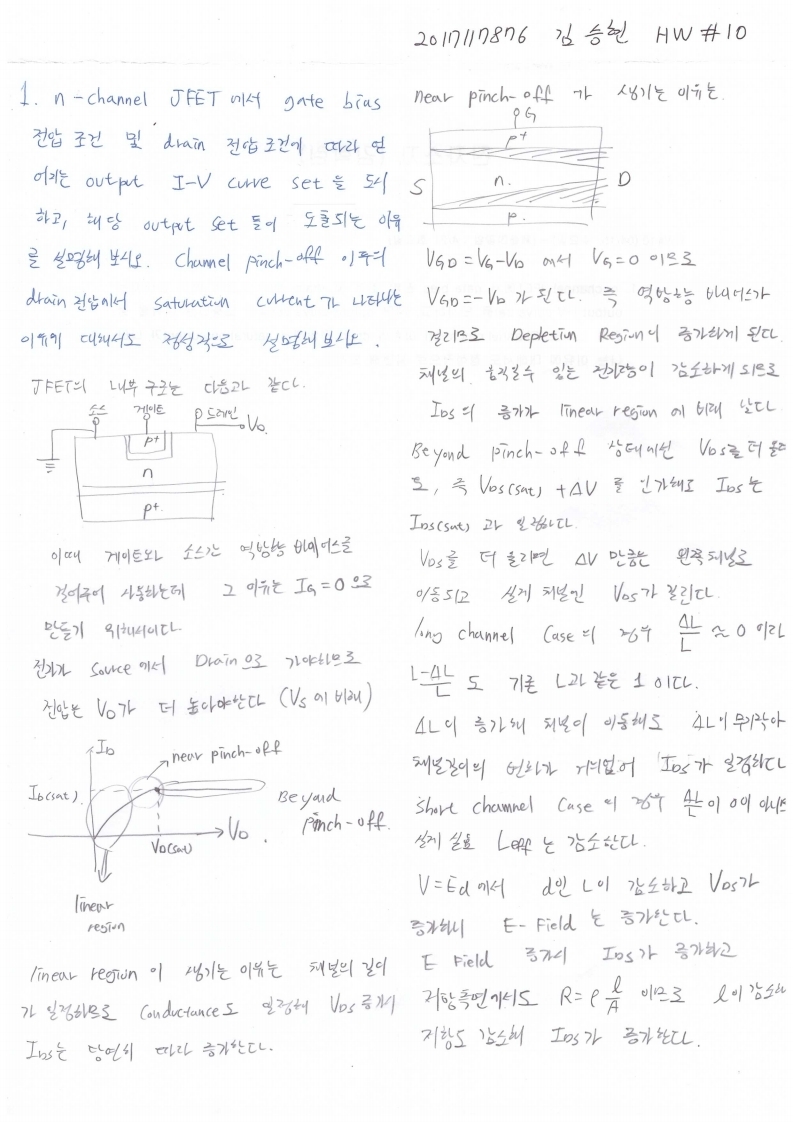 201717876 김승현 HW #10
1. n-channel JFET에서 gate bias
전압 조건 및 drain 전압 조건에 따라 얻
어지는 output I-V curve set을 도시
하고, 해당 output set 들이 도출되는 이유
를 설명해 보시오. Channel pinch-off 이후의
drain 전압에서 saturation current가 나타나는
이유에 대해서도 정성적으로 설명해보시오.
JFET의 내부 구조는 다음과 같다.
소스 게이트 드레인 VD
p+
n
p+
이때 게이트와 소스는 역방향 바이어스를
걸어주어 사용하는데 그 이유는 IG=0으로
만들기 위해서이다.
전자가 Source에서 Drain으로 가야하므로
전압은 VD가 더 높아야한다 (VS에 비해)
ID
near pinch-off
ID(sat)
Beyond
pinch-off.
VD
VD(sat)
linear
region
linear region이 생기는 이유는 채널의 길이
가 일정하므로 Conductance도 일정해 VDS 증가시
IDS는 당연히 따라 증가한다.
near pinch-off가 생기는 이유는
G
p+
S n. D
p.
VGD=VG-VD에서 VG=0이므로
VGD=-VD가 된다. 즉 역방향 바이어스가
걸리므로 Depletion Region이 증가하게 된다.
채널의 움직일수 있는 전자량이 감소하게 되므로
IDS의 증가가 linear region에 비해 낮다
Beyond pinch-off 상태에선 VDS를 더 올려
도, 즉 VDS(sat)+ΔV를 인가해도 IDS는
IDS(sat)과 일정하다.
VDS를 더 올리면 ΔV만큼은 왼쪽 채널로
이동되고 실제 채널엔 VDS가 걸린다.
long channel Case의 경우 ΔL/L ≈ 0이라
L-ΔL/L도 기존 L과 같은 1이다.
ΔL이 증가해 채널이 이동해도 ΔL이 무지작아
채널길이의 변화가 거의없어 IDS가 일정하다
short channel Case의 경우 ΔL/L이 0이 아니므
실제 실효 Leff는 감소한다.
V=Ed에서 d인 L이 감소하고 VDS가
증가하니 E-Field는 증가한다.
E Field 증가시 IDS가 증가하고
저항측면에서도 R=ρ l/A 이므로 l이 감소해
저항도 감소해 IDS가 증가한다.